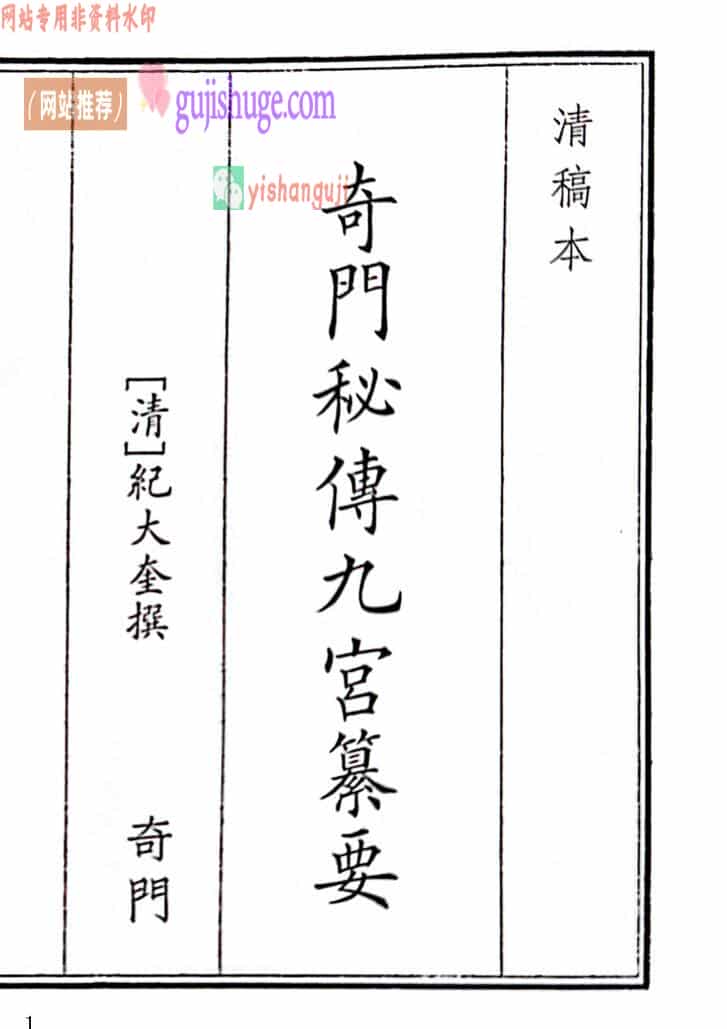 网站专用非资料水印
（网站推荐）
gujishuge.com
yishanguji
清稿本
奇門秘傳九宮纂要
[清]紀大奎撰
奇門
1